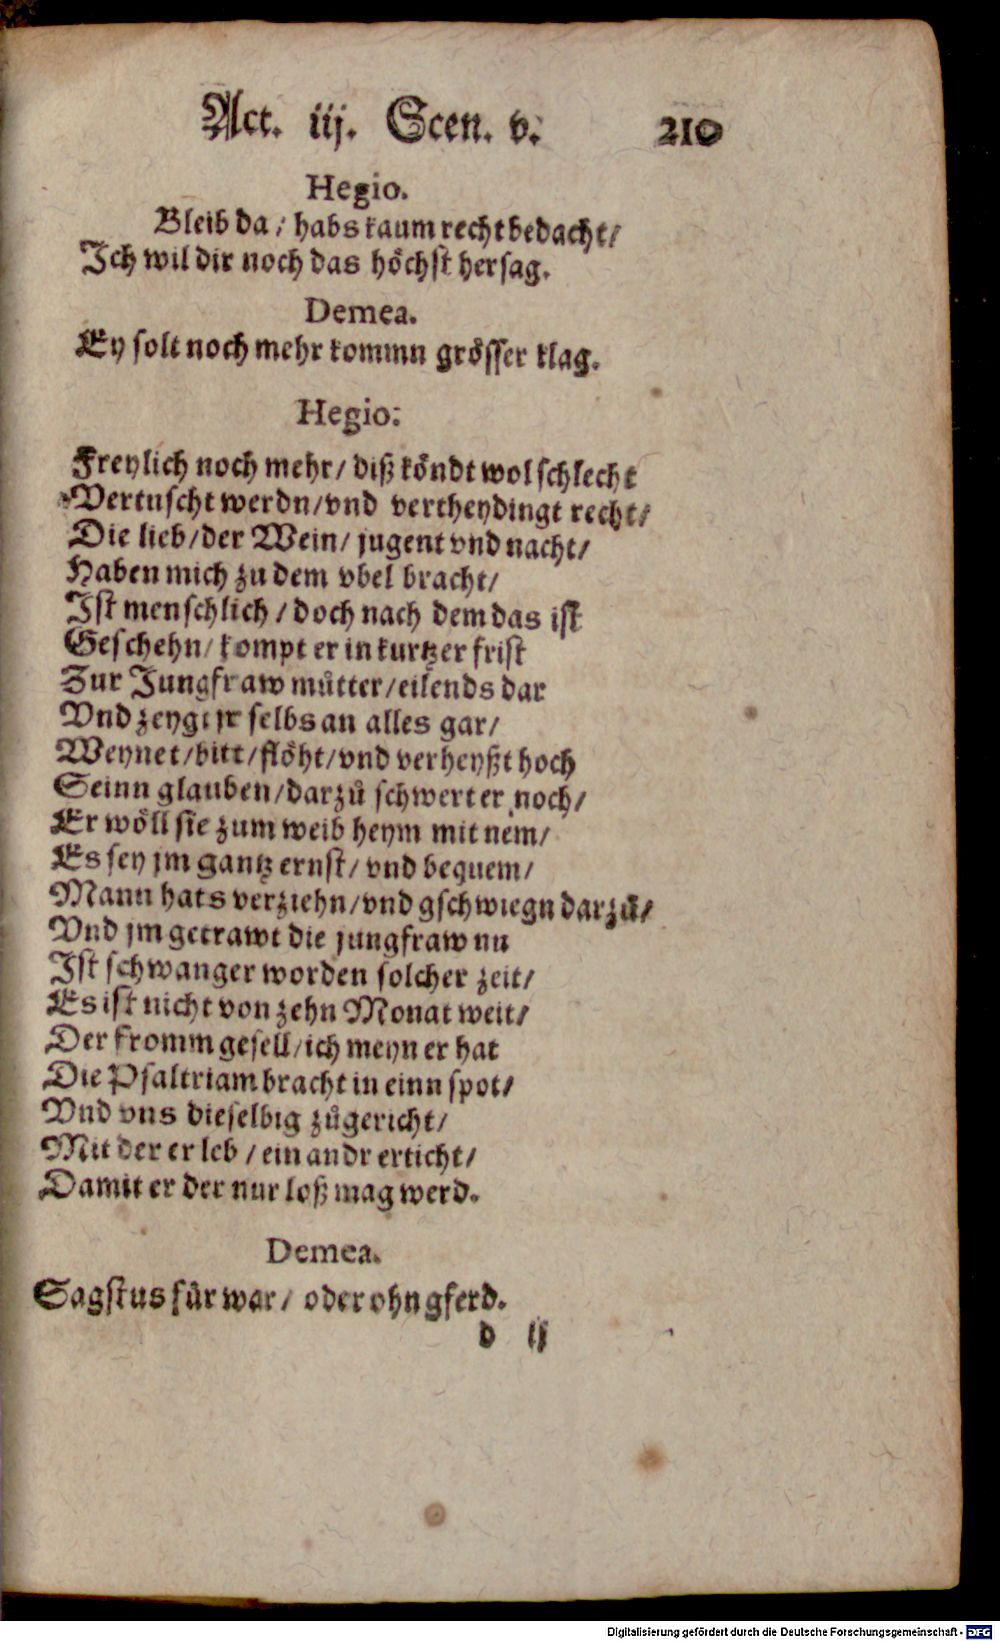 Act. iij. Scen. v. 210
Hegio.
Bleib da / habs kaum recht bedacht /
Ich wil dir noch das höchst hersag.
Demea.
Ey solt noch mehr kommn grösser klag.
Hegio:
Freylich noch mehr / diß köndt wol schlecht
Vertuscht werdn / vnd vertheydingt recht /
Die lieb / der Wein / jugent vnd nacht /
Haben mich zu dem vbel bracht /
Ist menschlich / doch nach dem das ist
Geschehn / kompt er in kurtzer frist
Zur Jungfraw můtter / eilends dar
Vnd zeygt jr selbs an alles gar /
Weynet / bitt / flöht / vnd verheyßt hoch
Seinn glauben / darzů schwert er noch /
Er wöll sie zum weib heym mit nem /
Es sey jm gantz ernst / vnd bequem /
Mann hats verziehn / vnd gschwiegn darzů /
Vnd jm getrawt die jungfraw nu
Ist schwanger worden solcher zeit /
Es ist nicht von zehn Monat weit /
Der fromm gesell / ich meyn er hat
Die Psaltriam bracht in einn spot /
Vnd vns dieselbig zůgericht /
Mit der er leb / ein andr erticht /
Damit er der nur loß mag werd.
Demea.
Sagstus für war / oder ohn gferd.
d ij
Digitalisierung gefördert durch die Deutsche Forschungsgemeinschaft - DFG